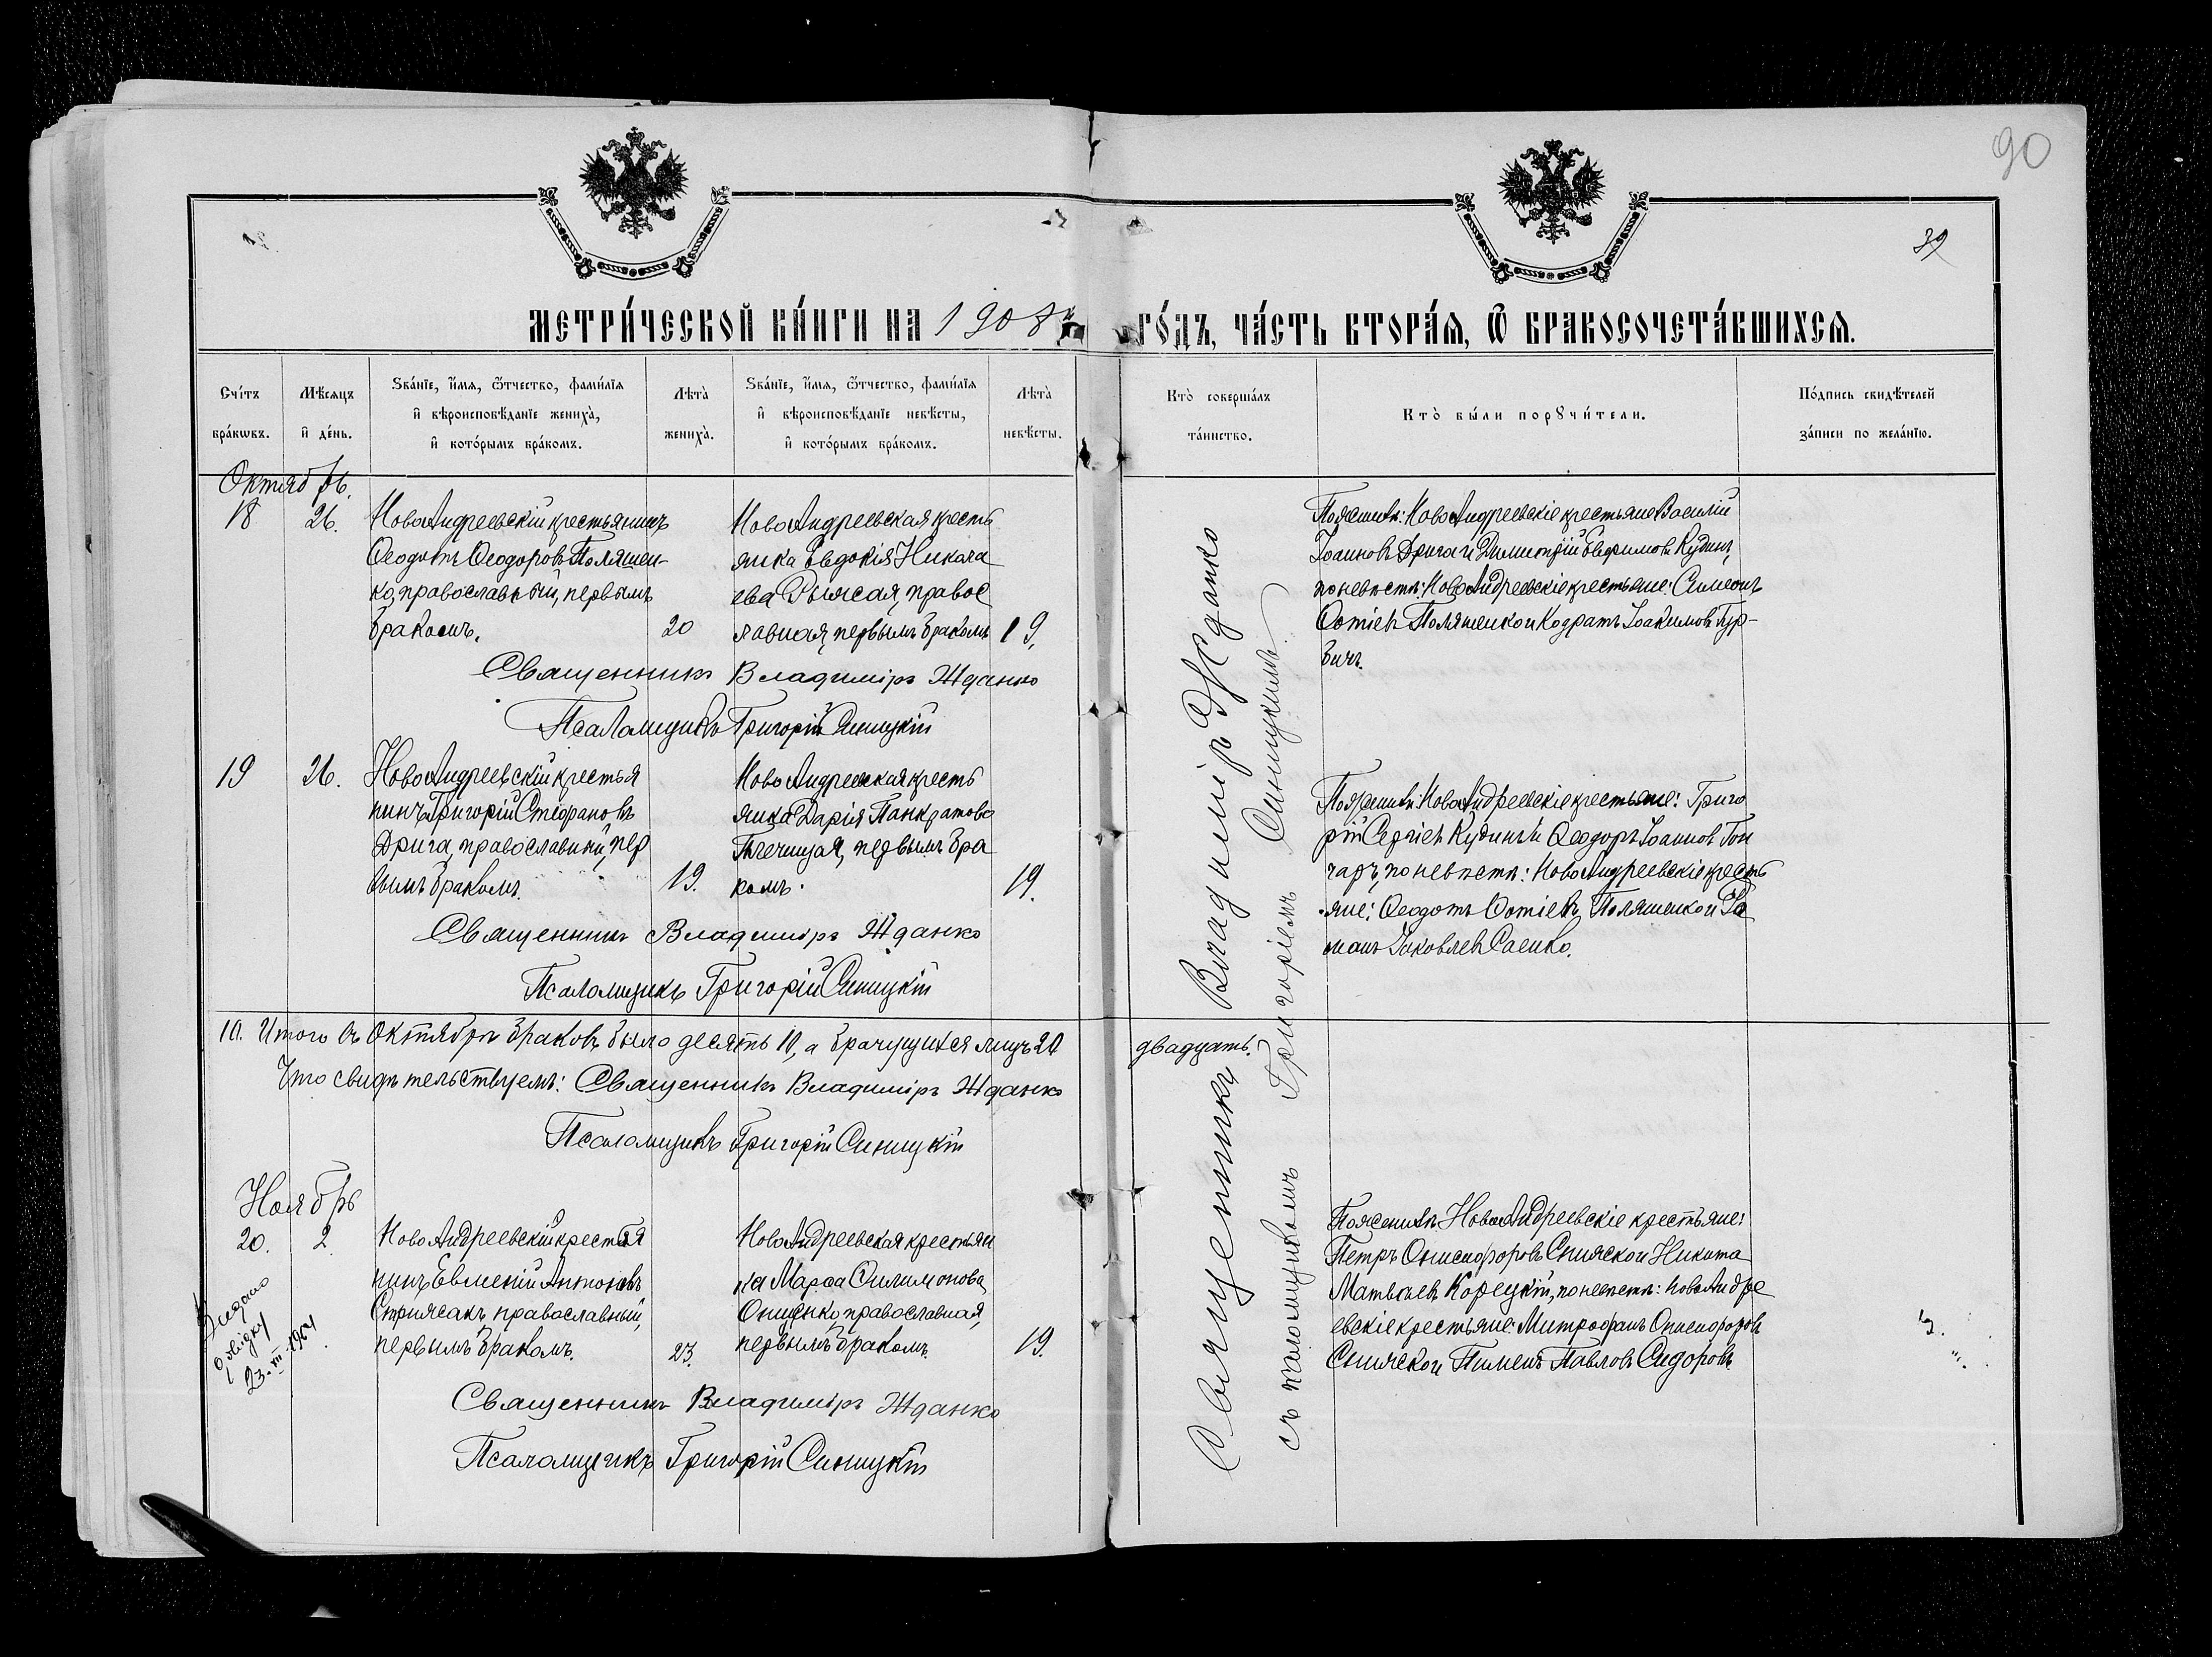 90
39
МЕТРИ́ЧЕСКОЙ КНИ́ГИ НА 1908й ГО́ДЪ, ЧА́СТЬ ВТОРА́Я, Ѡ БРАКОСОЧЕТА́ВШИХСѦ.
Сче́тъ бра́кѡвъ.
Мѣ́сѧцъ и҆ де́нь.
Ѕва́нїе, и҆́мѧ, ѻ҆́тчество, фами́лїѧ
и҆ вѣроисповѣ́данїе женихà,
и҆ кото́рымъ бра́комъ.
Лѣ́та женихà.
Ѕва́нїе, и҆́мѧ, ѻ҆́тчество, фами́лїѧ
и҆ вѣроисповѣ́данїе невѣ́сты,
и҆ кото́рымъ бра́комъ.
Лѣ́та невѣ́сты.
Кто̀ соверша́лъ та́инство.
Кто̀ бы́ли порꙋчи́тели.
По́дпись свидѣ́телей за́писи по жела́нїю.
Октябрь.
18
26.
НовоАндреевскій крестьянинъ
Ѳеодотъ Ѳеодоровъ Поляшен-
ко, православный, первымъ
бракомъ.
20
НовоАндреевская кресть
янка Евдокія Никола
ева Рыжая, правос
лавная, первымъ бракомъ
19.
По женихѣ: НовоАндреевскіе крестьяне Василій
Іоанновъ Дрига и Димитрій Евфимовъ Кудинъ,
по невѣстѣ: НовоАндреевскіе крестьяне: Симеонъ
Фотіевъ Поляшенко и Кодратъ Іоакимовъ Гур-
бичъ.
Священникъ Владиміръ Жданко
Псаломщикъ Григорій Синицкій
19
26.
НовоАндреевскій крестья
нинъ Григорій Стефановъ
Дрига, православный, пер
вымъ бракомъ.
19.
НовоАндреевская кресть
янка Дарія Панкратова
первымъ бра
комъ.
19.
По женихѣ: НовоАндреевскіе крестьяне: Григо
рій Сергіевъ Кудинъ и Ѳеодоръ Іоанновъ Гон
чаръ, по невѣстѣ: НовоАндреевскіе кресть
яне: Ѳеодотъ Фотіевъ Поляшенко и Ро
манъ Іаковлевъ Саенко.
Священникъ Владиміръ Жданко
Псаломщикъ Григорій Синицкій
10. Итого въ Октябрѣ браковъ было десять 10, а брачущихся лицъ 20 двадцать.
Что свидѣтельствуемъ: Священникъ Владиміръ Жданко
Псаломщикъ Григорій Синицкій
Ноябрь
20.
2.
НовоАндреевскій крестья
нинъ Евмений Антоновъ
Стрижакъ православный,
первымъ бракомъ.
23.
НовоАндреевская крестьян
ка Марѳа Филимонова
Онищенко, православная,
первымъ бракомъ.
19.
По женихѣ НовоАндреевскіе крестьяне:
Петръ Онисифоровъ Снижко и Никита
Матвѣевъ Корецкій, по невѣстѣ: НовоАндре
евскіе крестьяне: Митрофанъ Онисифоровъ
Снижко и Пименъ Павловъ Сидоровъ
Видано
довідку
23.XII.1954
Священникъ Владиміръ Жданко
Псаломщикъ Григорій Синицкій
Священникъ Владиміръ Жданко
съ псаломщикомъ Григоріемъ Синицкимъ.